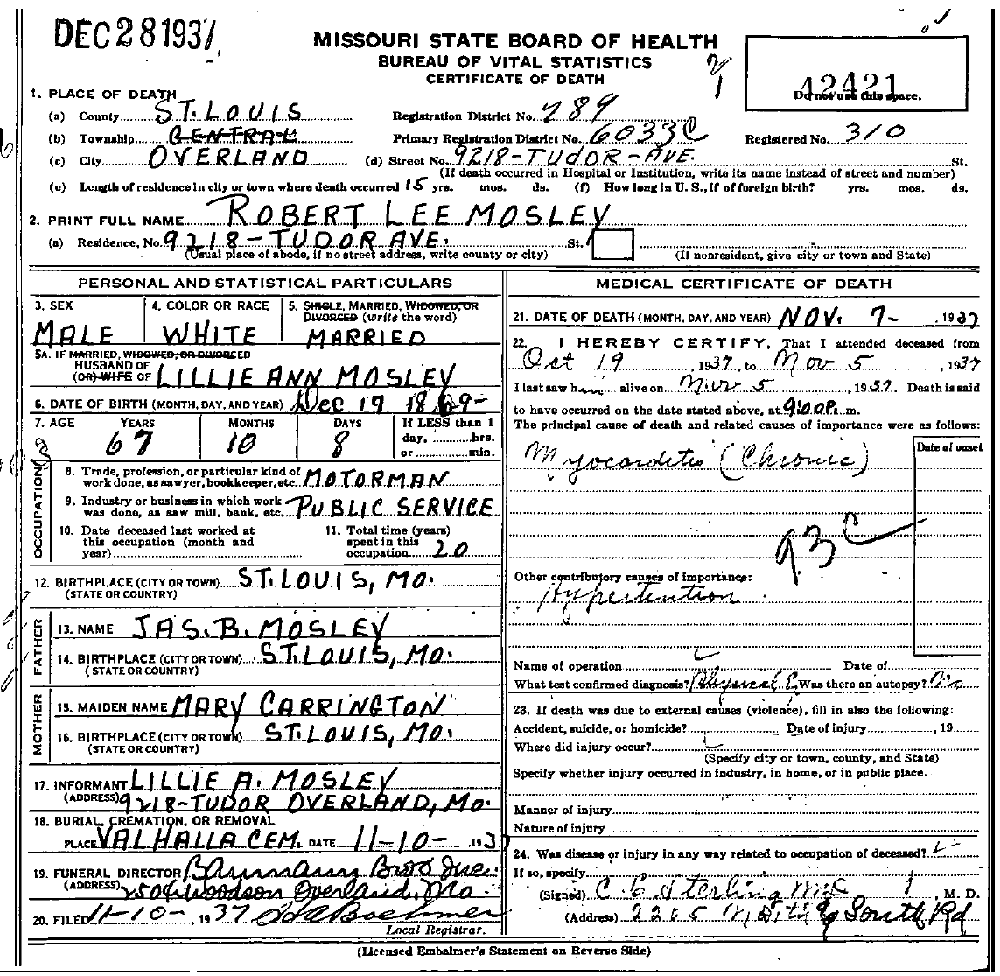 DEC 28 1937
MISSOURI STATE BOARD OF HEALTH
BUREAU OF VITAL STATISTICS
CERTIFICATE OF DEATH
42421
Do not use this space.
1. PLACE OF DEATH
(a) County ST. LOUIS Registration District No. 789
(b) Township CENTRAL Primary Registration District No. 6033C Registered No. 310
(c) City OVERLAND (d) Street No. 9218-TUDOR-AVE. St.
(If death occurred in Hospital or Institution, write its name instead of street and number)
(e) Length of residence in city or town where death occurred 15 yrs. mos. ds. (f) How long in U. S., if of foreign birth? yrs. mos. ds.
2. PRINT FULL NAME ROBERT LEE MOSLEY
(a) Residence, No. 9218-TUDOR AVE. St.
(Usual place of abode, if no street address, write county or city) (If nonresident, give city or town and State)
PERSONAL AND STATISTICAL PARTICULARS
3. SEX MALE
4. COLOR OR RACE WHITE
5. SINGLE, MARRIED, WIDOWED, OR DIVORCED (write the word) MARRIED
5A. IF MARRIED, WIDOWED, OR DIVORCED
HUSBAND OF
(OR) WIFE OF LILLIE ANN MOSLEY
6. DATE OF BIRTH (MONTH, DAY, AND YEAR) Dec 19 1869-
7. AGE YEARS 67 MONTHS 10 DAYS 8 If LESS than 1 day, hrs. or min.
OCCUPATION
8. Trade, profession, or particular kind of work done, as sawyer, bookkeeper, etc. MOTORMAN
9. Industry or business in which work was done, as saw mill, bank, etc. PUBLIC SERVICE
10. Date deceased last worked at this occupation (month and year)
11. Total time (years) spent in this occupation 20
12. BIRTHPLACE (CITY OR TOWN) ST. LOUIS, MO.
(STATE OR COUNTRY)
FATHER
13. NAME JAS. B. MOSLEY
14. BIRTHPLACE (CITY OR TOWN) ST. LOUIS, MO.
(STATE OR COUNTRY)
MOTHER
15. MAIDEN NAME MARY CARRINGTON
16. BIRTHPLACE (CITY OR TOWN) ST. LOUIS, MO.
(STATE OR COUNTRY)
17. INFORMANT LILLIE A. MOSLEY
(ADDRESS) 9218-TUDOR OVERLAND, MO.
18. BURIAL, CREMATION, OR REMOVAL
PLACE VALHALLA CEM. DATE 11-10- 1937
19. FUNERAL DIRECTOR Baumann Bros Inc.
(ADDRESS) Woodson Overland, Mo.
20. FILED 11-10- 1937 Boehmer
Local Registrar.
MEDICAL CERTIFICATE OF DEATH
21. DATE OF DEATH (MONTH, DAY, AND YEAR) NOV. 7- 1937
22. I HEREBY CERTIFY, That I attended deceased from
Oct 19 1937, to Nov 5 1937
I last saw him alive on Nov 5 1937. Death is said
to have occurred on the date stated above, at 9:00 P. m.
The principal cause of death and related causes of importance were as follows:
Date of onset
Myocarditis (Chronic)
93C
Other contributory causes of importance:
Hypertention
Name of operation Date of
What test confirmed diagnosis? Physical Was there an autopsy? No
23. If death was due to external causes (violence), fill in also the following:
Accident, suicide, or homicide? Date of injury , 19
Where did injury occur?
(Specify city or town, county, and State)
Specify whether injury occurred in industry, in home, or in public place.
Manner of injury
Nature of injury
24. Was disease or injury in any way related to occupation of deceased?
If so, specify
(Signed) Sterling M. D.
(Address) South Rd
(Licensed Embalmer's Statement on Reverse Side)